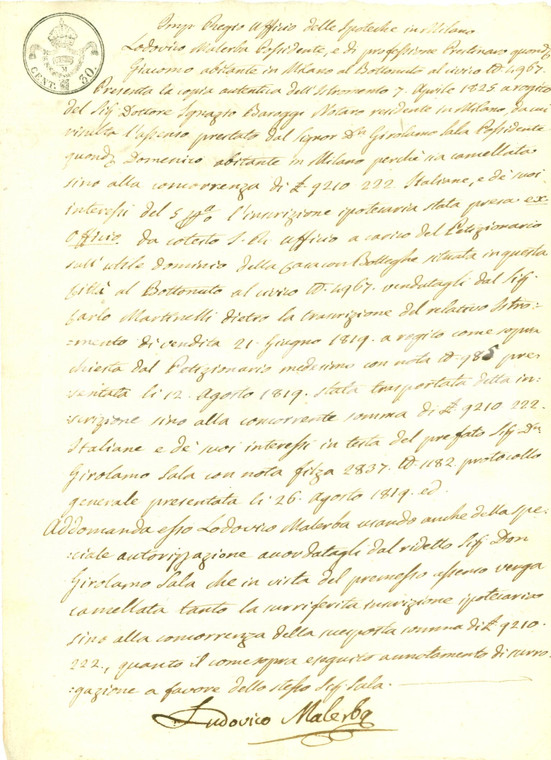 Imp. Regio Ufficio delle Ipoteche in Milano
CENT. 30.
Lodovico Malerba Possidente, e di professione Prestinaro quond.
Giacomo abitante in Milano al Bottonuto al civico N. 4967.
Presenta la copia autentica dell'Istromento 7. Aprile 1825 a rogito
del Sig. Dottore Ignazio Baroggi Notaro residente in Milano, da cui
risulta l'assenso prestato dal Signor Dn. Girolamo Sala Possidente
quond. Domenico abitante in Milano perchè sia cancellata
sino alla concorrenza di £. 9210 222. Italiane, e de' suoi
interessi del 5 p% l'inscrizione ipotecaria stata presa ex
Officio, da cotesto I. R. Ufficio a carico del Petizionario
sull'utile dominio della Casa con Botteghe situata in questa
Città al Bottonuto al civico N. 4967. vendutagli dal Sig.
Carlo Martinelli dietro la trascrizione del relativo Istro=
=mento di vendita 21. Giugno 1819. a rogito come sopra
chiesta dal Petizionario medesimo con nota N. 785 pre=
=sentata li 12. Agosto 1819. stata trasportata detta in=
=scrizione sino alla concorrente somma di £. 9210 222.
Italiane e de' suoi interessi in testa del preffato Sig. Dn.
Girolamo Sala con nota filza 2837. N. 1182. protocollo
generale presentata li 26. Agosto 1819. ed
Addomanda esso Lodovico Malerba usando anche della spe=
=ciale autorizzazione accordatagli dal ridetto Sig. Don
Girolamo Sala che in vista del premesso assenso venga
cancellata tanto la surriferita inscrizione ipotecaria
sino alla concorrenza della suesposta somma di £. 9210.
222., quanto il come sopra eseguito annotamento di surro=
=gazione a favore dello stesso Sig. Sala.
Ludovico Malerba